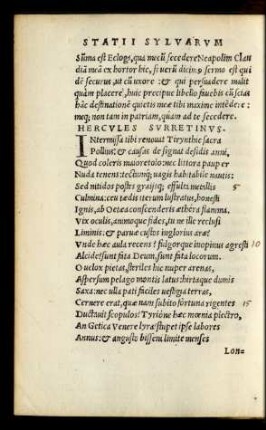 STATII SYLVARVM
sima est Ecloga, qua mecū secedere Neapolim Clau
diā meā exhortor hic, si uerū dicimꝰ sermo est qui
dē securus, ut cū uxore :& qui persuadere malit
quàm placere, huic precipue libello suuebis cū scias
hāc destinationē quietis meæ tibi maxime intēdere :
meq; non tam in patriam, quàm ad te secedere.
HERCVLES SVRRETINVS.
INtermissa tibi renouat Tirynthie sacra
Pollius: & causas designat desidis anni,
Quod coleris maiore tolo: nec littora pauper
Nuda tenens: tectumq; uagis habitabile nautis:
Sed nitidos postes graijsq; effulta metallis 5
Culmina: ceu tædis iterum lustratus, honesti
Ignis, ab Oetæa conscenderis æthera flamma.
Vix oculis, animoque fides, tu ne ille reclusi
Liminis: & paruæ custos inglorius aræ?
Vnde hæc aula recens? fulgorque inopinus agresti 10
Alcidæ? sunt fata Deum, sunt fata locorum.
O uelox pietas, steriles hic nuper arenas,
Aspersum pelago montis latus: hirtaque dumis
Saxa: nec ulla pati faciles uestigia terras,
Cernere erat, quæ nam subito fortuna rigentes 15
Ductauit scopulos? Tyrio ne hæc mœnia plectro,
An Getica Venere lyra? stupet ipse labores
Annus: & angusto bisseni limite menses
Lon-